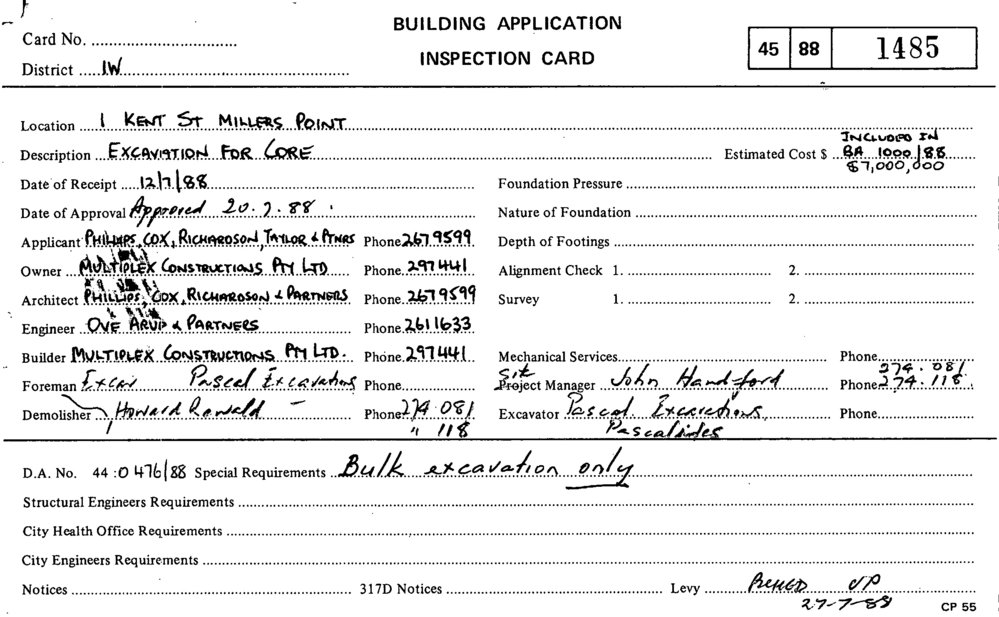 BUILDING APPLICATION
INSPECTION CARD
Card No.
District IW
45 88 1485
Location 1 KENT ST MILLERS POINT
Description EXCAVATION FOR CORE Estimated Cost $ INCLUDED IN BA 1000/88 $7,000,000
Date of Receipt 12/7/88 Foundation Pressure
Date of Approval Approved 20.7.88 Nature of Foundation
Applicant PHILLIPS, COX, RICHARDSON, TAYLOR & PTNRS Phone 267 9599 Depth of Footings
Owner MULTIPLEX CONSTRUCTIONS PTY LTD Phone 297441 Alignment Check 1. 2.
Architect PHILLIPS, COX, RICHARDSON & PARTNERS Phone 267 9599 Survey 1. 2.
Engineer OVE ARUP & PARTNERS Phone 2611633
Builder MULTIPLEX CONSTRUCTIONS PTY LTD. Phone 297441 Mechanical Services Phone
Foreman Excav Pascal Excavations Phone Site Project Manager John Handford Phone 274.081 274.118
Demolisher Howard Phone 274 081 " 118 Excavator Pascal Excavations, Pascalides Phone
D.A. No. 44:0476/88 Special Requirements Bulk excavation only
Structural Engineers Requirements
City Health Office Requirements
City Engineers Requirements
Notices 317D Notices Levy
27-7-88
CP 55